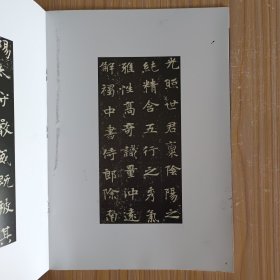 光照世君稟陰陽之
純精含五行之秀氣
雅性高奇識量沖遠
解褐中書侍郎除南
陽太守嚴威既被其